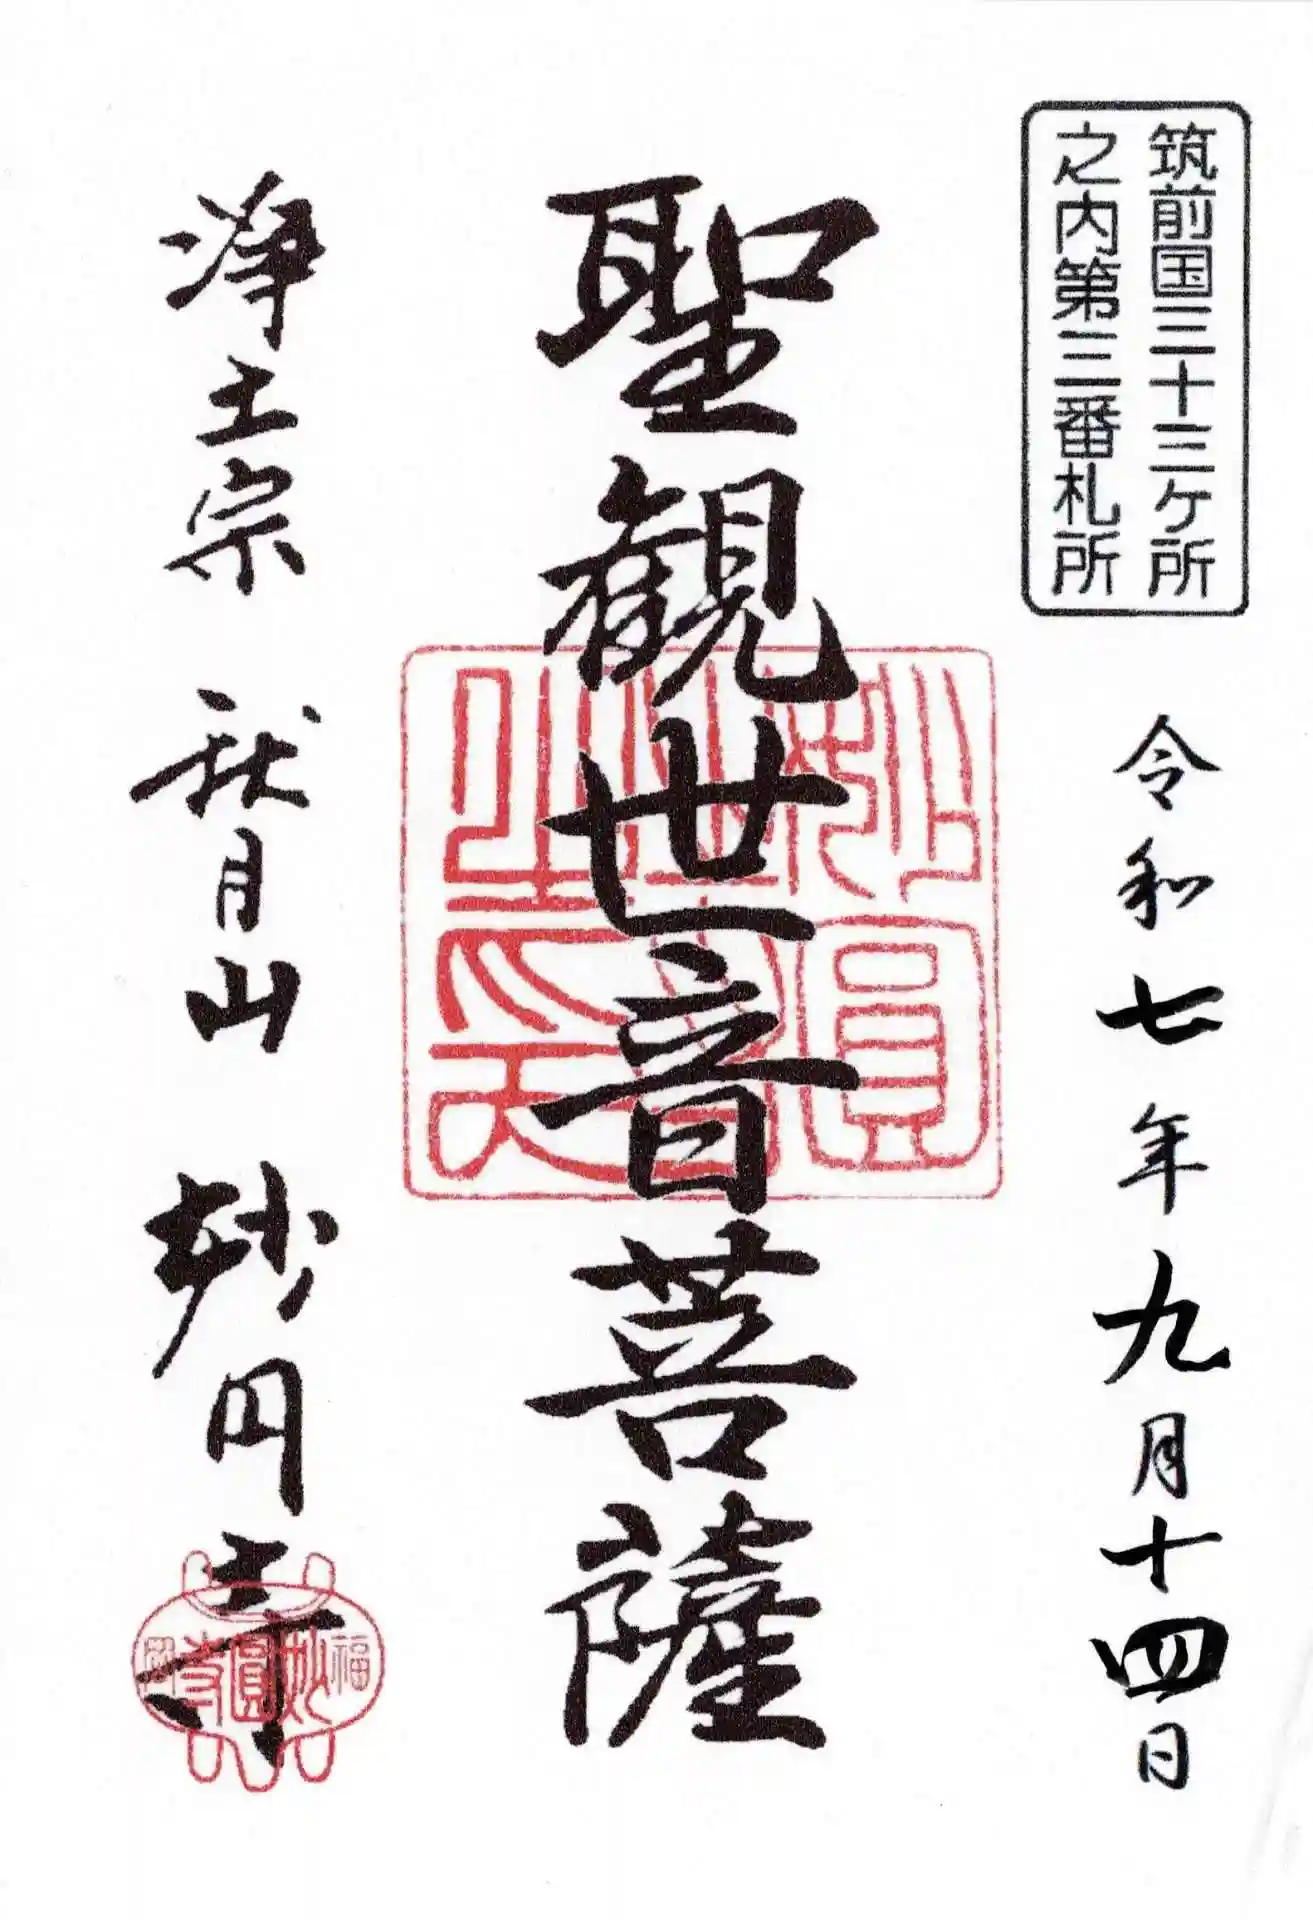 筑前国三十三ケ所
之内第三番札所
令和七年九月十四日
聖観世音菩薩
浄土宗 秋月山 妙円寺
福 妙圓寺 岡